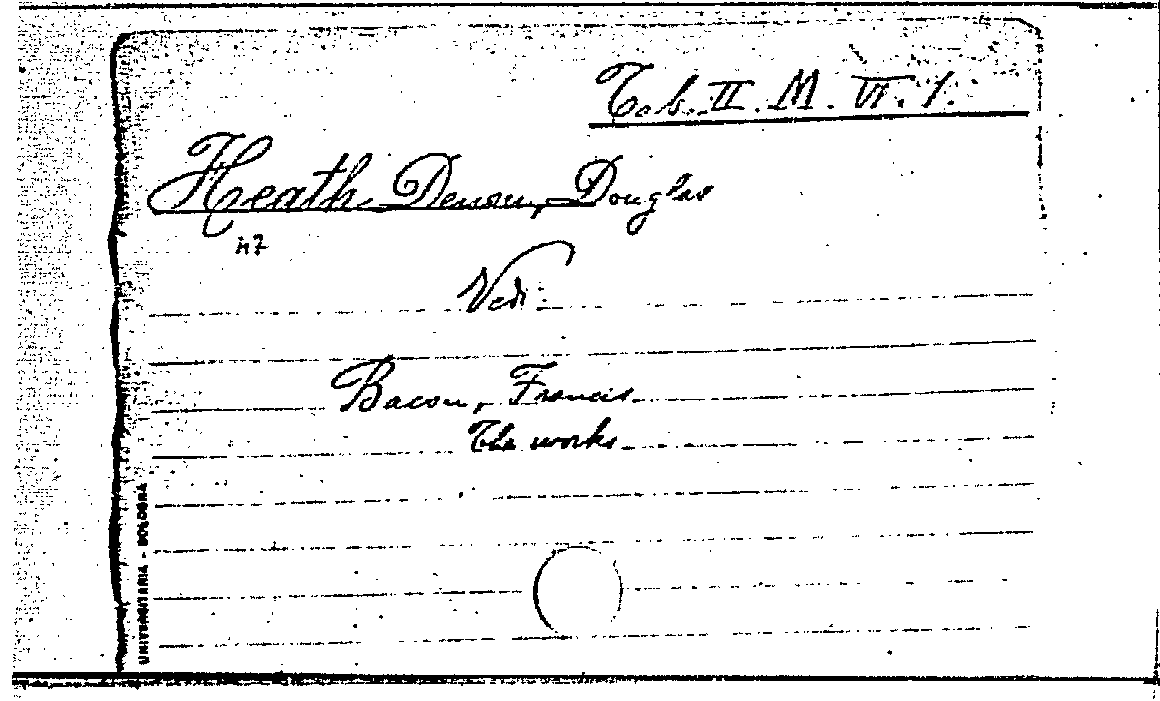 Tab. II. M. VI. 1.
Heath Denon, Douglas
47
Vedi:
Bacon, Francis.
The works.
UNIVERSITARIA - BOLOGNA